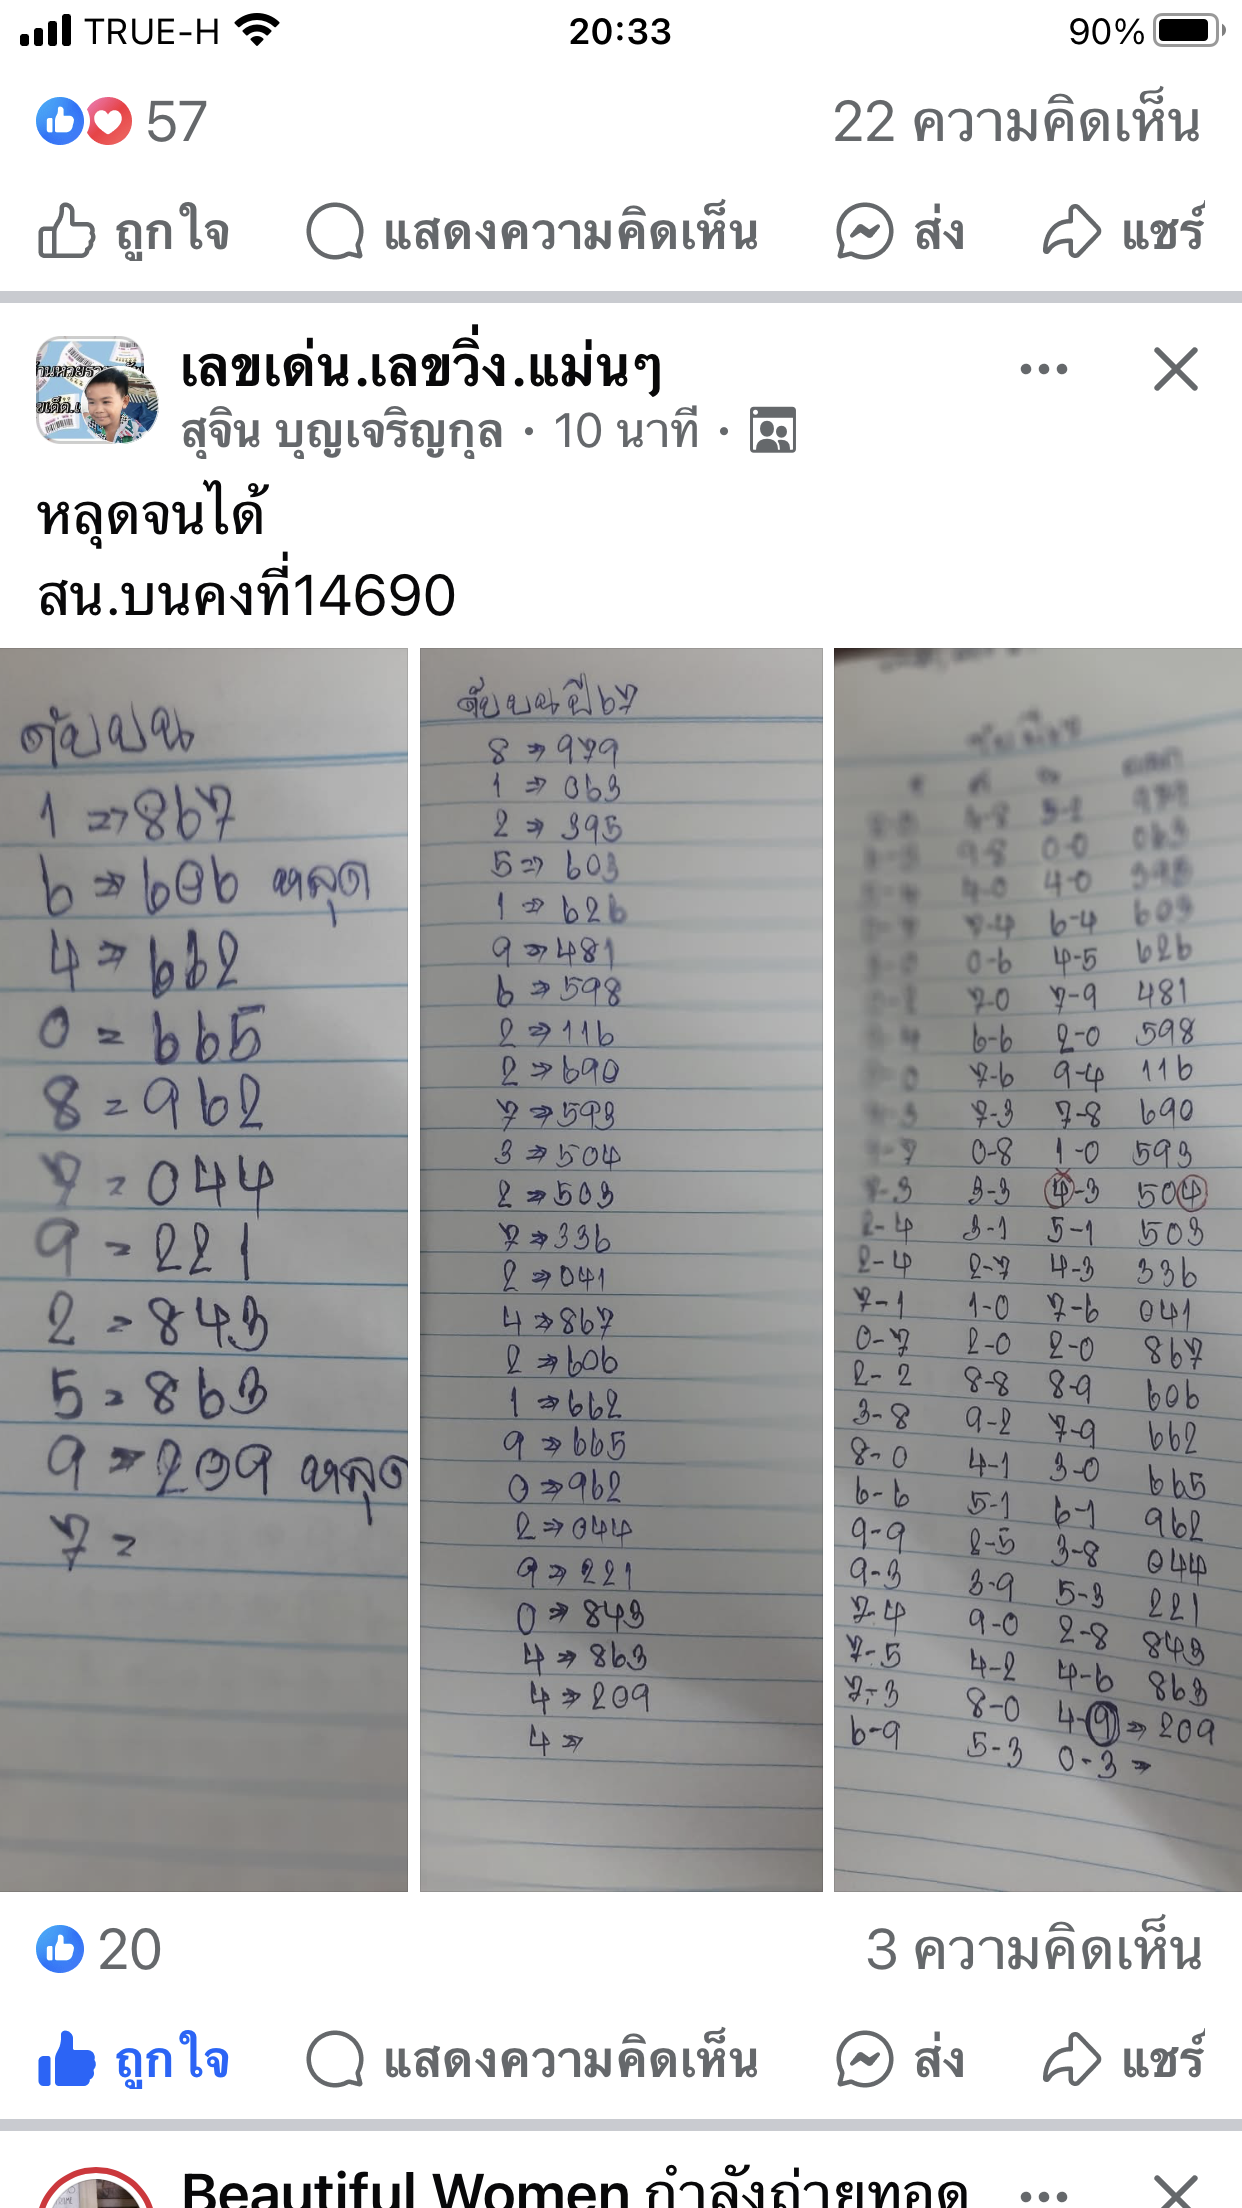 TRUE-H 20:33 90%
57 22 ความคิดเห็น
ถูกใจ แสดงความคิดเห็น ส่ง แชร์
เลขเด่น.เลขวิ่ง.แม่นๆ
สุจิน บุญเจริญกุล · 10 นาที ·
หลุดจนได้
สน.บนคงที่14690
ดับบน
1 => 867
6 => 606 หลุด
4 => 662
0 = 665
8 = 962
7 = 044
9 = 221
2 = 843
5 = 863
9 => 209 หลุด
7 =
ดับบนปี67
8 => 979
1 => 063
2 => 395
5 => 603
1 => 626
9 => 481
6 => 598
2 => 116
2 => 690
7 => 593
3 => 504
2 => 503
7 => 336
2 => 041
4 => 867
2 => 606
1 => 662
9 => 665
0 => 962
2 => 044
9 => 221
0 => 843
4 => 863
4 => 209
4 =>
4-8 5-2 979
9-8 0-0 063
4-0 4-0 395
7-4 6-4 603
0-6 4-5 626
7-0 7-9 481
6-6 2-0 598
7-6 9-4 116
7-3 7-8 690
0-8 1-0 593
3-3 4-3 504
2-4 3-1 5-1 503
2-4 2-7 4-3 336
7-1 1-0 7-6 041
0-7 2-0 2-0 867
2-2 8-8 8-9 606
3-8 9-2 7-9 662
8-0 4-1 3-0 665
6-6 5-1 6-1 962
9-9 2-5 3-8 044
9-3 3-9 5-3 221
7-4 9-0 2-8 843
7-5 4-2 4-6 863
7-3 8-0 4-9 => 209
6-9 5-3 0-3 =>
20 3 ความคิดเห็น
ถูกใจ แสดงความคิดเห็น ส่ง แชร์
Beautiful Women กำลังถ่ายทอด